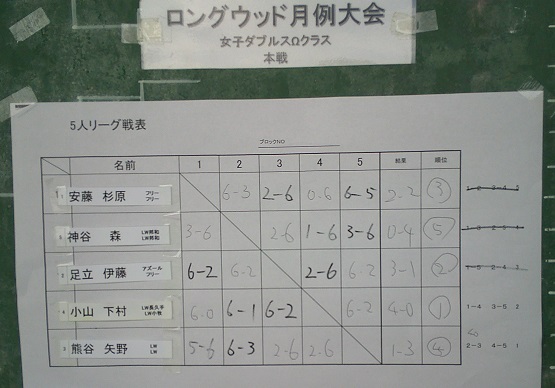 ロングウッド月例大会
女子ダブルスΩクラス
本戦
5人リーグ戦表
ブロックNO
名前 1 2 3 4 5 結果 順位
1 安藤 杉原 フリー フリー 6-3 2-6 0-6 6-5 2-2 ③
神谷 森 LW昭和 LW昭和 3-6 2-6 1-6 3-6 0-4 ⑤
足立 伊藤 アズール フリー 6-2 6-2 2-6 6-2 3-1 ②
4 小山 下村 LW長久手 LW小牧 6-0 6-1 6-2 6-2 4-0 ① 1-4 3-5 2
熊谷 矢野 LW LW 5-6 6-3 2-6 2-6 1-3 ④ 2-3 4-5 1